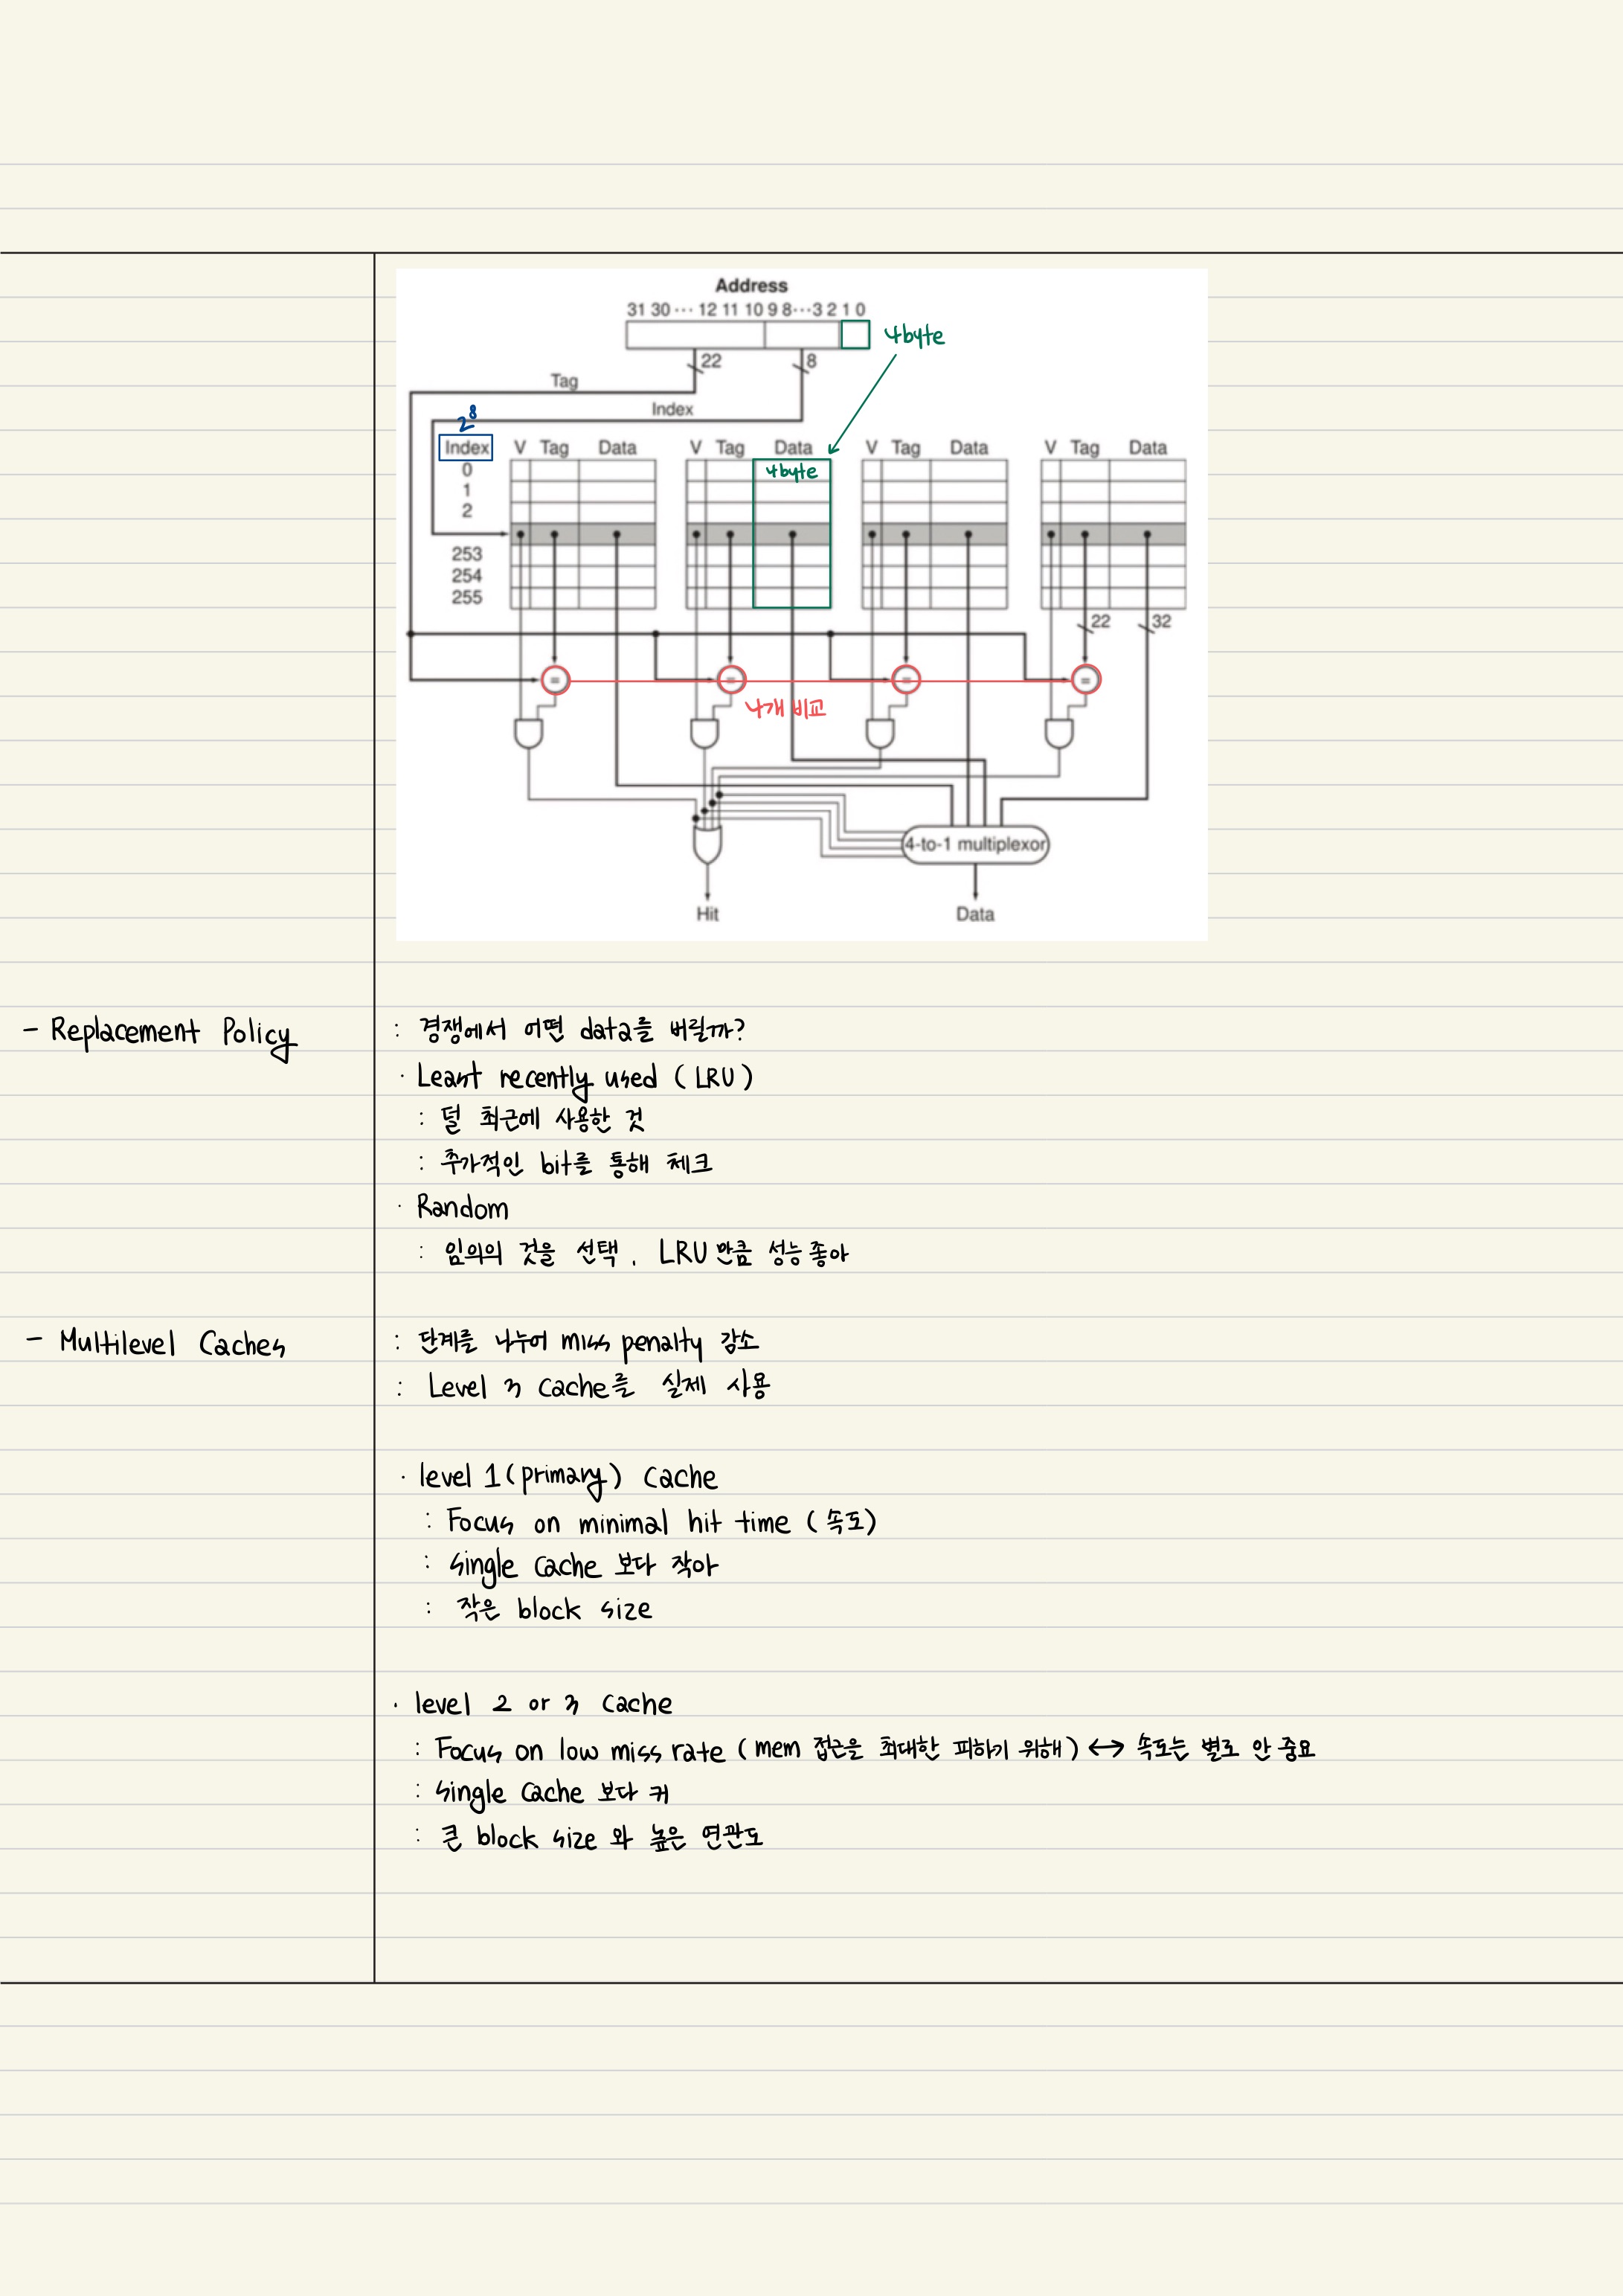 Address
31 30 ··· 12 11 10 9 8···3 2 1 0
4byte
22
8
Tag
Index
2⁸
Index V Tag Data V Tag Data V Tag Data V Tag Data
0
4byte
1
2
253
254
255
22
32
= = = =
4개 비교
4-to-1 multiplexor
Hit
Data
- Replacement Policy
: 경쟁에서 어떤 data를 버릴까?
· Least recently used (LRU)
: 덜 최근에 사용한 것
: 추가적인 bit를 통해 체크
· Random
: 임의의 것을 선택. LRU만큼 성능 좋아
- Multilevel Caches
: 단계를 나누어 miss penalty 감소
: Level 3 Cache를 실제 사용
· level 1 (primary) Cache
: Focus on minimal hit time (속도)
: single Cache 보다 작아
: 작은 block size
· level 2 or 3 Cache
: Focus on low miss rate (mem 접근을 최대한 피하기 위해) ↔ 속도는 별로 안 중요
: single Cache 보다 커
: 큰 block size 와 높은 연관도